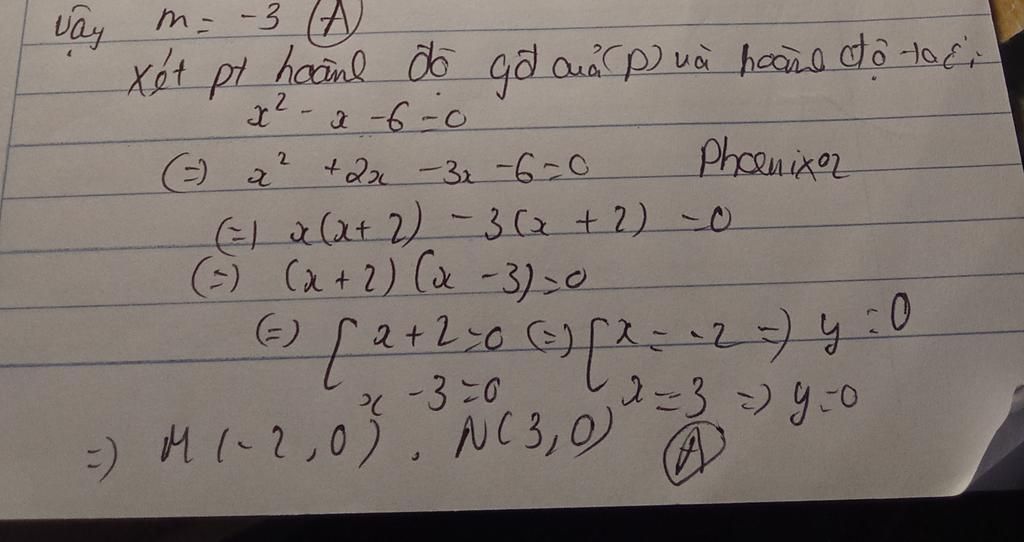 Vậy m = -3 (A)
Xét pt hoành độ gđ của (P) và hoành độ
x² - x - 6 = 0
(=) x² + 2x - 3x - 6 = 0 Phoenixoz
(=) x(x + 2) - 3(x + 2) = 0
(=) (x + 2) (x - 3) = 0
(=) [ x + 2 = 0 (=) [ x = -2 => y = 0
x - 3 = 0 x = 3 => y = 0
=) M (-2, 0) . N(3, 0) (A)